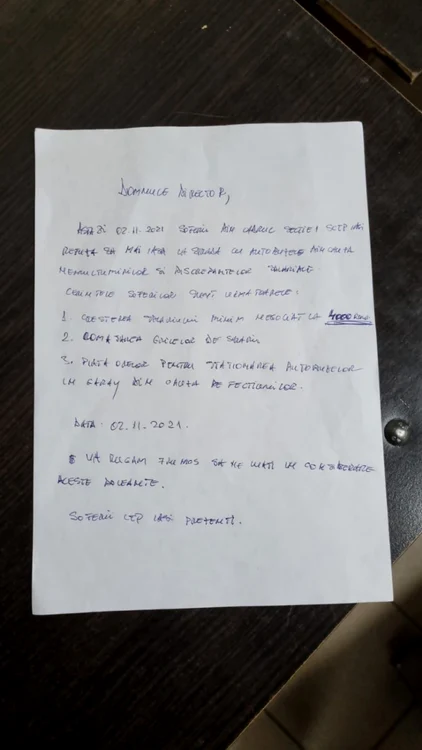 DOMNULE DIRECTOR,
ASTĂZI 02.11.2021 SOFERII DIN CADRUL SECTIEI IASI
REFUZĂ SA MAI IASA LA CU AUTOBUZELE DIN CAUZA
NEMULTUMIRILOR SI DISCREPANTELOR SALARIALE.
CERINTELE SOFERILOR SUNT URMATOARELE:
1. CRESTEREA SALARIULUI MINIM NEGOCIAT LA 4000 RON
2. COMASAREA GRILELOR DE SALARII
3. PLATA ORELOR PENTRU STATIONAREA AUTOBUZELOR
IN GARAJ DIN CAUZA DEFECTIUNILOR.
DATA: 02.11.2021.
VA RUGAM FRUMOS SA NE LUATI IN CONSIDERARE
ACESTE DOLEANTE.
SOFERII IASI PREZENTI.